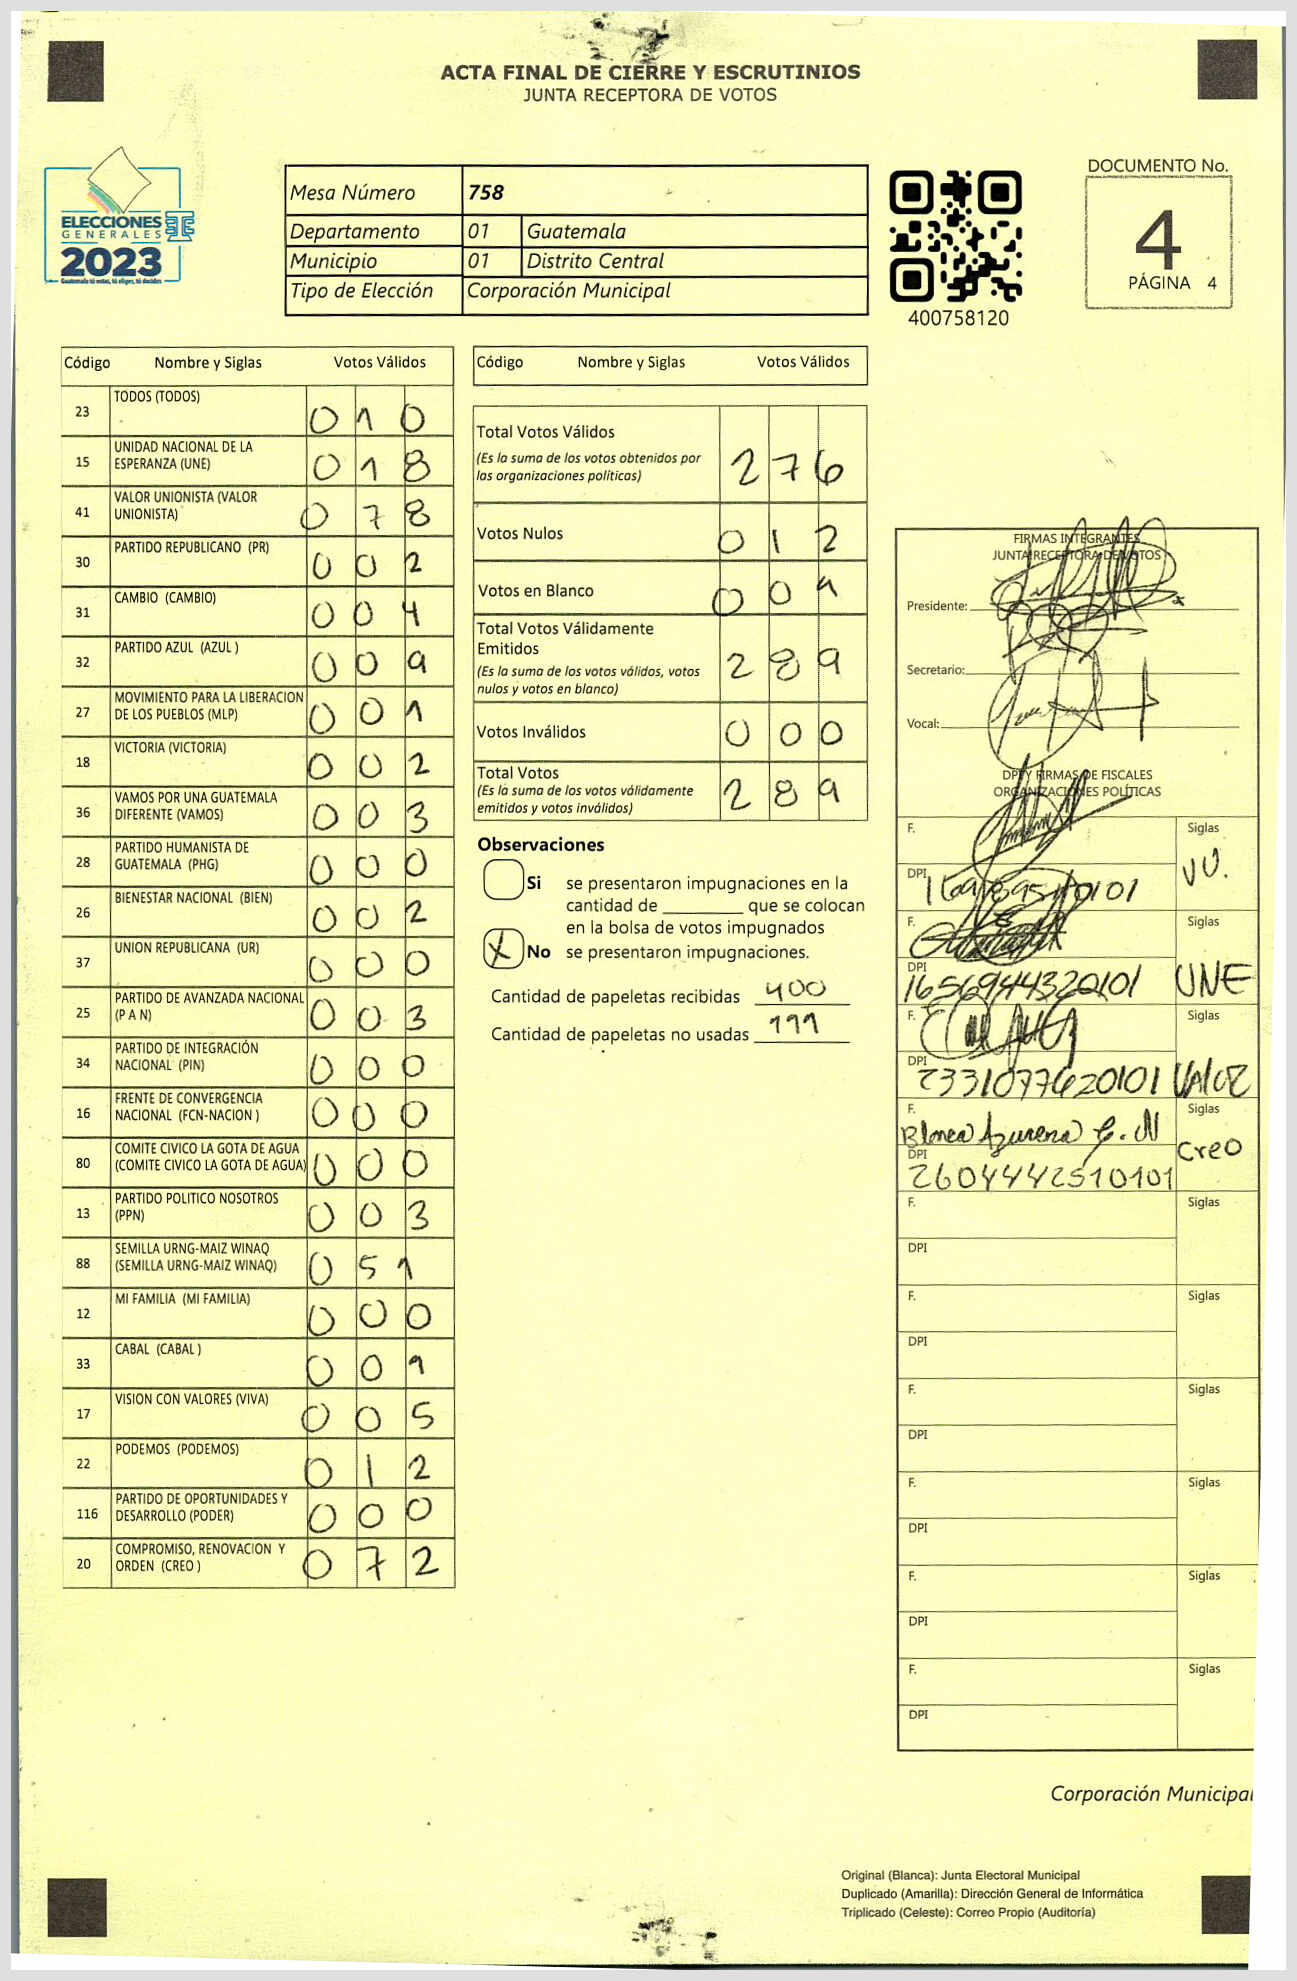 ACTA FINAL DE CIERRE Y ESCRUTINIOS
JUNTA RECEPTORA DE VOTOS
ELECCIONES
GENERALES
2023
Guatemala tú votas, tú eliges, tú decides
Mesa Número 758
Departamento 01 Guatemala
Municipio 01 Distrito Central
Tipo de Elección Corporación Municipal
400758120
DOCUMENTO No.
4
PÁGINA 4
Código Nombre y Siglas Votos Válidos
23 TODOS (TODOS) 0 1 0
15 UNIDAD NACIONAL DE LA ESPERANZA (UNE) 0 1 8
41 VALOR UNIONISTA (VALOR UNIONISTA) 0 7 8
30 PARTIDO REPUBLICANO (PR) 0 0 2
31 CAMBIO (CAMBIO) 0 0 4
32 PARTIDO AZUL (AZUL ) 0 0 9
27 MOVIMIENTO PARA LA LIBERACION DE LOS PUEBLOS (MLP) 0 0 1
18 VICTORIA (VICTORIA) 0 0 2
36 VAMOS POR UNA GUATEMALA DIFERENTE (VAMOS) 0 0 3
28 PARTIDO HUMANISTA DE GUATEMALA (PHG) 0 0 0
26 BIENESTAR NACIONAL (BIEN) 0 0 2
37 UNION REPUBLICANA (UR) 0 0 0
25 PARTIDO DE AVANZADA NACIONAL (P A N) 0 0 3
34 PARTIDO DE INTEGRACIÓN NACIONAL (PIN) 0 0 0
16 FRENTE DE CONVERGENCIA NACIONAL (FCN-NACION ) 0 0 0
80 COMITE CIVICO LA GOTA DE AGUA (COMITE CIVICO LA GOTA DE AGUA) 0 0 0
13 PARTIDO POLITICO NOSOTROS (PPN) 0 0 3
88 SEMILLA URNG-MAIZ WINAQ (SEMILLA URNG-MAIZ WINAQ) 0 5 1
12 MI FAMILIA (MI FAMILIA) 0 0 0
33 CABAL (CABAL ) 0 0 1
17 VISION CON VALORES (VIVA) 0 0 5
22 PODEMOS (PODEMOS) 0 1 2
116 PARTIDO DE OPORTUNIDADES Y DESARROLLO (PODER) 0 0 0
20 COMPROMISO, RENOVACION Y ORDEN (CREO ) 0 7 2
Código Nombre y Siglas Votos Válidos
Total Votos Válidos 2 7 6
(Es la suma de los votos obtenidos por
las organizaciones políticas)
Votos Nulos 0 1 2
Votos en Blanco 0 0 1
Total Votos Válidamente
Emitidos 2 8 9
(Es la suma de los votos válidos, votos
nulos y votos en blanco)
Votos Inválidos 0 0 0
Total Votos 2 8 9
(Es la suma de los votos válidamente
emitidos y votos inválidos)
Observaciones
Si se presentaron impugnaciones en la
cantidad de ________ que se colocan
en la bolsa de votos impugnados
X No se presentaron impugnaciones.
Cantidad de papeletas recibidas 400
Cantidad de papeletas no usadas 111
FIRMAS INTEGRANTES
JUNTA RECEPTORA DE VOTOS
Presidente:
Secretario:
Vocal:
DPI Y FIRMAS DE FISCALES
ORGANIZACIONES POLÍTICAS
F. Siglas
DPI VU.
F. Siglas
DPI 1656944320101 UNE
F. Siglas
DPI 2331077620101 VALOR
F. Blanca Azucena C. N Siglas
DPI 2604442510101 Creo
F. Siglas
DPI
F. Siglas
DPI
F. Siglas
DPI
F. Siglas
DPI
F. Siglas
DPI
F. Siglas
DPI
Corporación Municipal
Original (Blanca): Junta Electoral Municipal
Duplicado (Amarilla): Dirección General de Informática
Triplicado (Celeste): Correo Propio (Auditoría)